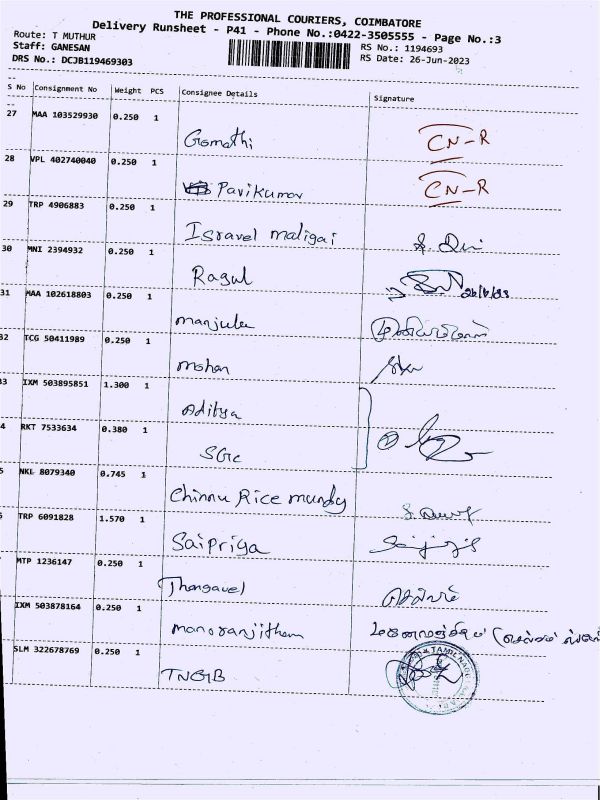 THE PROFESSIONAL COURIERS, COIMBATORE
Delivery Runsheet - P41 - Phone No.:0422-3505555 - Page No.:3
Route: T MUTHUR
RS No.: 1194693
Staff: GANESAN
RS Date: 26-Jun-2023
DRS No.: DCJB119469303
S No Consignment No Weight PCS Consignee Details Signature
27 MAA 103529930 0.250 1
Gomathi CN-R
28 VPL 402740040 0.250 1
Pavikumar CN-R
29 TRP 4906883 0.250 1
Isravel maligai
30 MNI 2394932 0.250 1
Ragul 26/6/23
31 MAA 102618803 0.250 1
manjula
32 TCG 50411989 0.250 1
mohan
33 IXM 503895851 1.300 1
Aditya
4 RKT 7533634 0.380 1
SGC
5 NKL 8079340 0.745 1
Chinnu Rice mundy
6 TRP 6091828 1.570 1
Saipriya
MTP 1236147 0.250 1
Thangavel
IXM 503878164 0.250 1
manoranjitham
SLM 322678769 0.250 1
TNGB